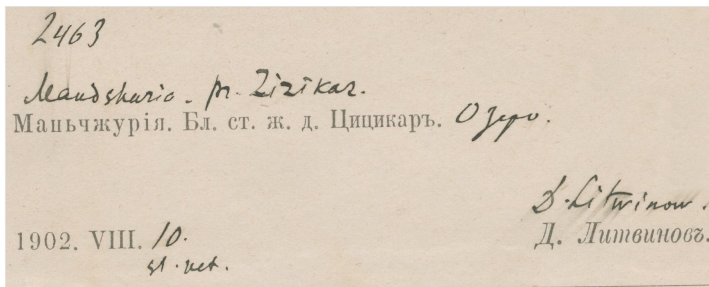 2463
Mandshuria. pr. Zizikar.
Маньчжурія. Бл. ст. ж. д. Цицикаръ. Озеро.
D. Litwinow.
1902. VIII. 10. Д. Литвиновъ.
st. vet.